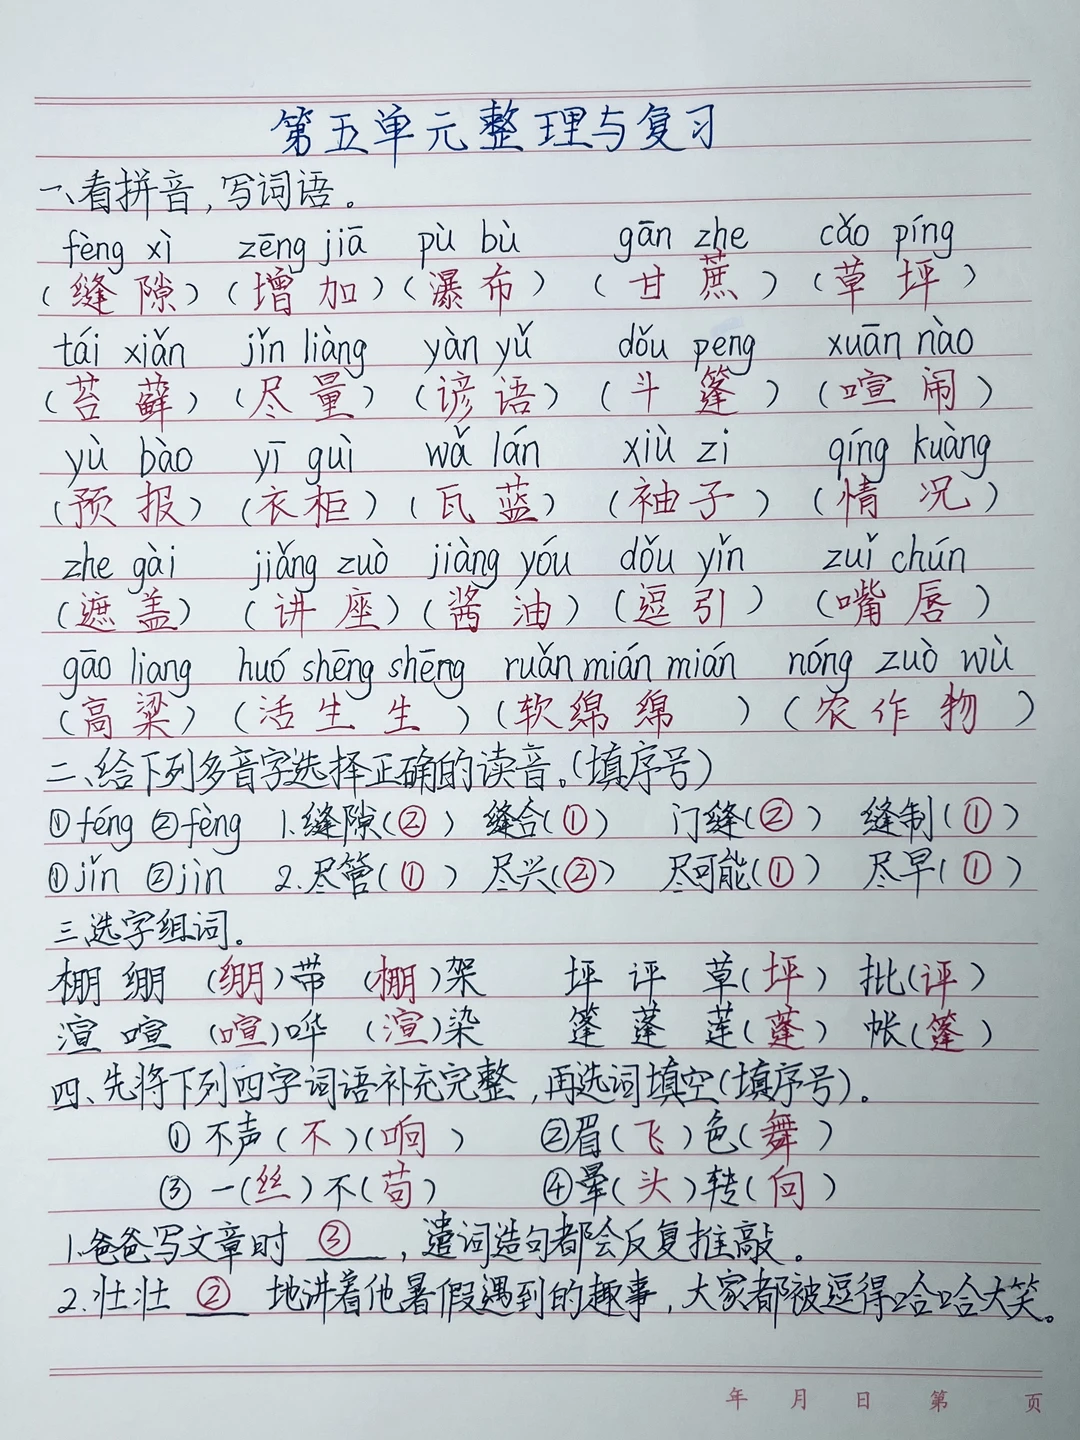 第五单元整理与复习
一、看拼音,写词语。
fèng xì zēng jiā pù bù gān zhe cǎo píng
(缝隙)(增加)(瀑布)(甘蔗)(草坪)
tái xiǎn jǐn liàng yàn yǔ dǒu peng xuān nào
(苔藓)(尽量)(谚语)(斗篷)(喧闹)
yù bào yī guì wǎ lán xiù zi qíng kuàng
(预报)(衣柜)(瓦蓝)(袖子)(情况)
zhe gài jiǎng zuò jiàng yóu dǒu yǐn zuǐ chún
(遮盖)(讲座)(酱油)(逗引)(嘴唇)
gāo liang huó shēng shēng ruǎn mián mián nóng zuò wù
(高粱)(活生生)(软绵绵)(农作物)
二、给下列多音字选择正确的读音。(填序号)
①féng ②fèng 1.缝隙(②) 缝合(①) 门缝(②) 缝制(①)
①jǐn ②jìn 2.尽管(①) 尽兴(②) 尽可能(①) 尽早(①)
三、选字组词。
棚 绷 (绷)带 (棚)架 坪 评 草(坪) 批(评)
渲 喧 (喧)哗 (渲)染 篷 蓬 莲(蓬) 帐(篷)
四、先将下列四字词语补充完整,再选词填空(填序号)。
①不声(不)(响) ②眉(飞)色(舞)
③一(丝)不(苟) ④晕(头)转(向)
1.爸爸写文章时 ③ ,遣词造句都会反复推敲。
2.壮壮 ② 地讲着他暑假遇到的趣事,大家都被逗得哈哈大笑。
年 月 日 第 页